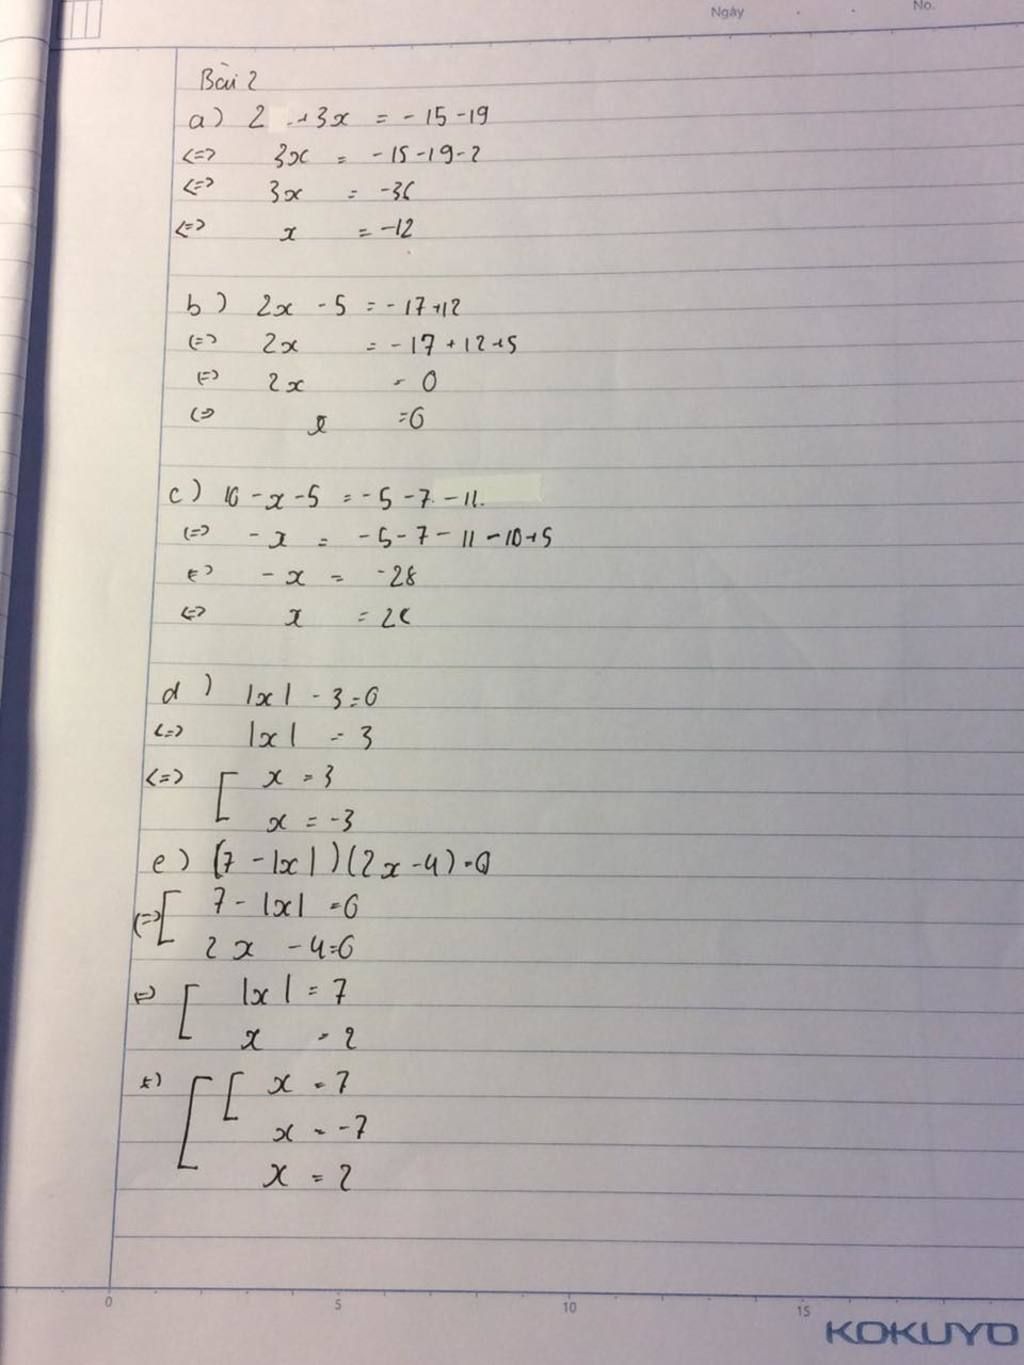 Ngày
No.
Bài 2
a) 2 + 3x = -15-19
<=> 3x = -15-19-2
<=> 3x = -36
<=> x = -12
b) 2x - 5 = -17+12
<=> 2x = -17+12+5
<=> 2x = 0
<=> x = 0
c) 10 - x - 5 = -5 - 7 - 11
<=> -x = -5 - 7 - 11 - 10 + 5
<=> -x = -28
<=> x = 28
d) |x| - 3 = 0
<=> |x| = 3
<=> [ x = 3
x = -3
e) (7 - |x|)(2x - 4) = 0
<=> [ 7 - |x| = 0
2x - 4 = 0
<=> [ |x| = 7
x = 2
<=> [ [ x = 7
x = -7
x = 2
0 5 10 15
KOKUYO